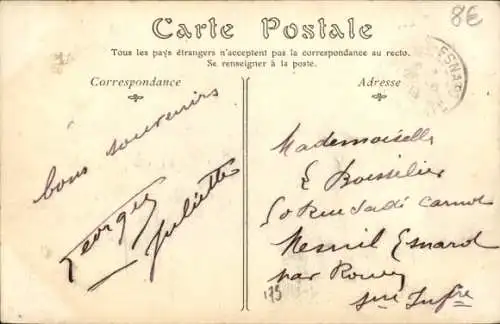 8€
Carte Postale
Tous les pays étrangers n'acceptent pas la correspondance au recto.
Se renseigner à la poste.
Correspondance
bons souvenirs
Georges
Juliette
Adresse
Mademoiselle
E Boisselier
50 Rue Sadi Carnot
Mesnil Esnard
par Rouen
Sne Infre
175
ESNARD